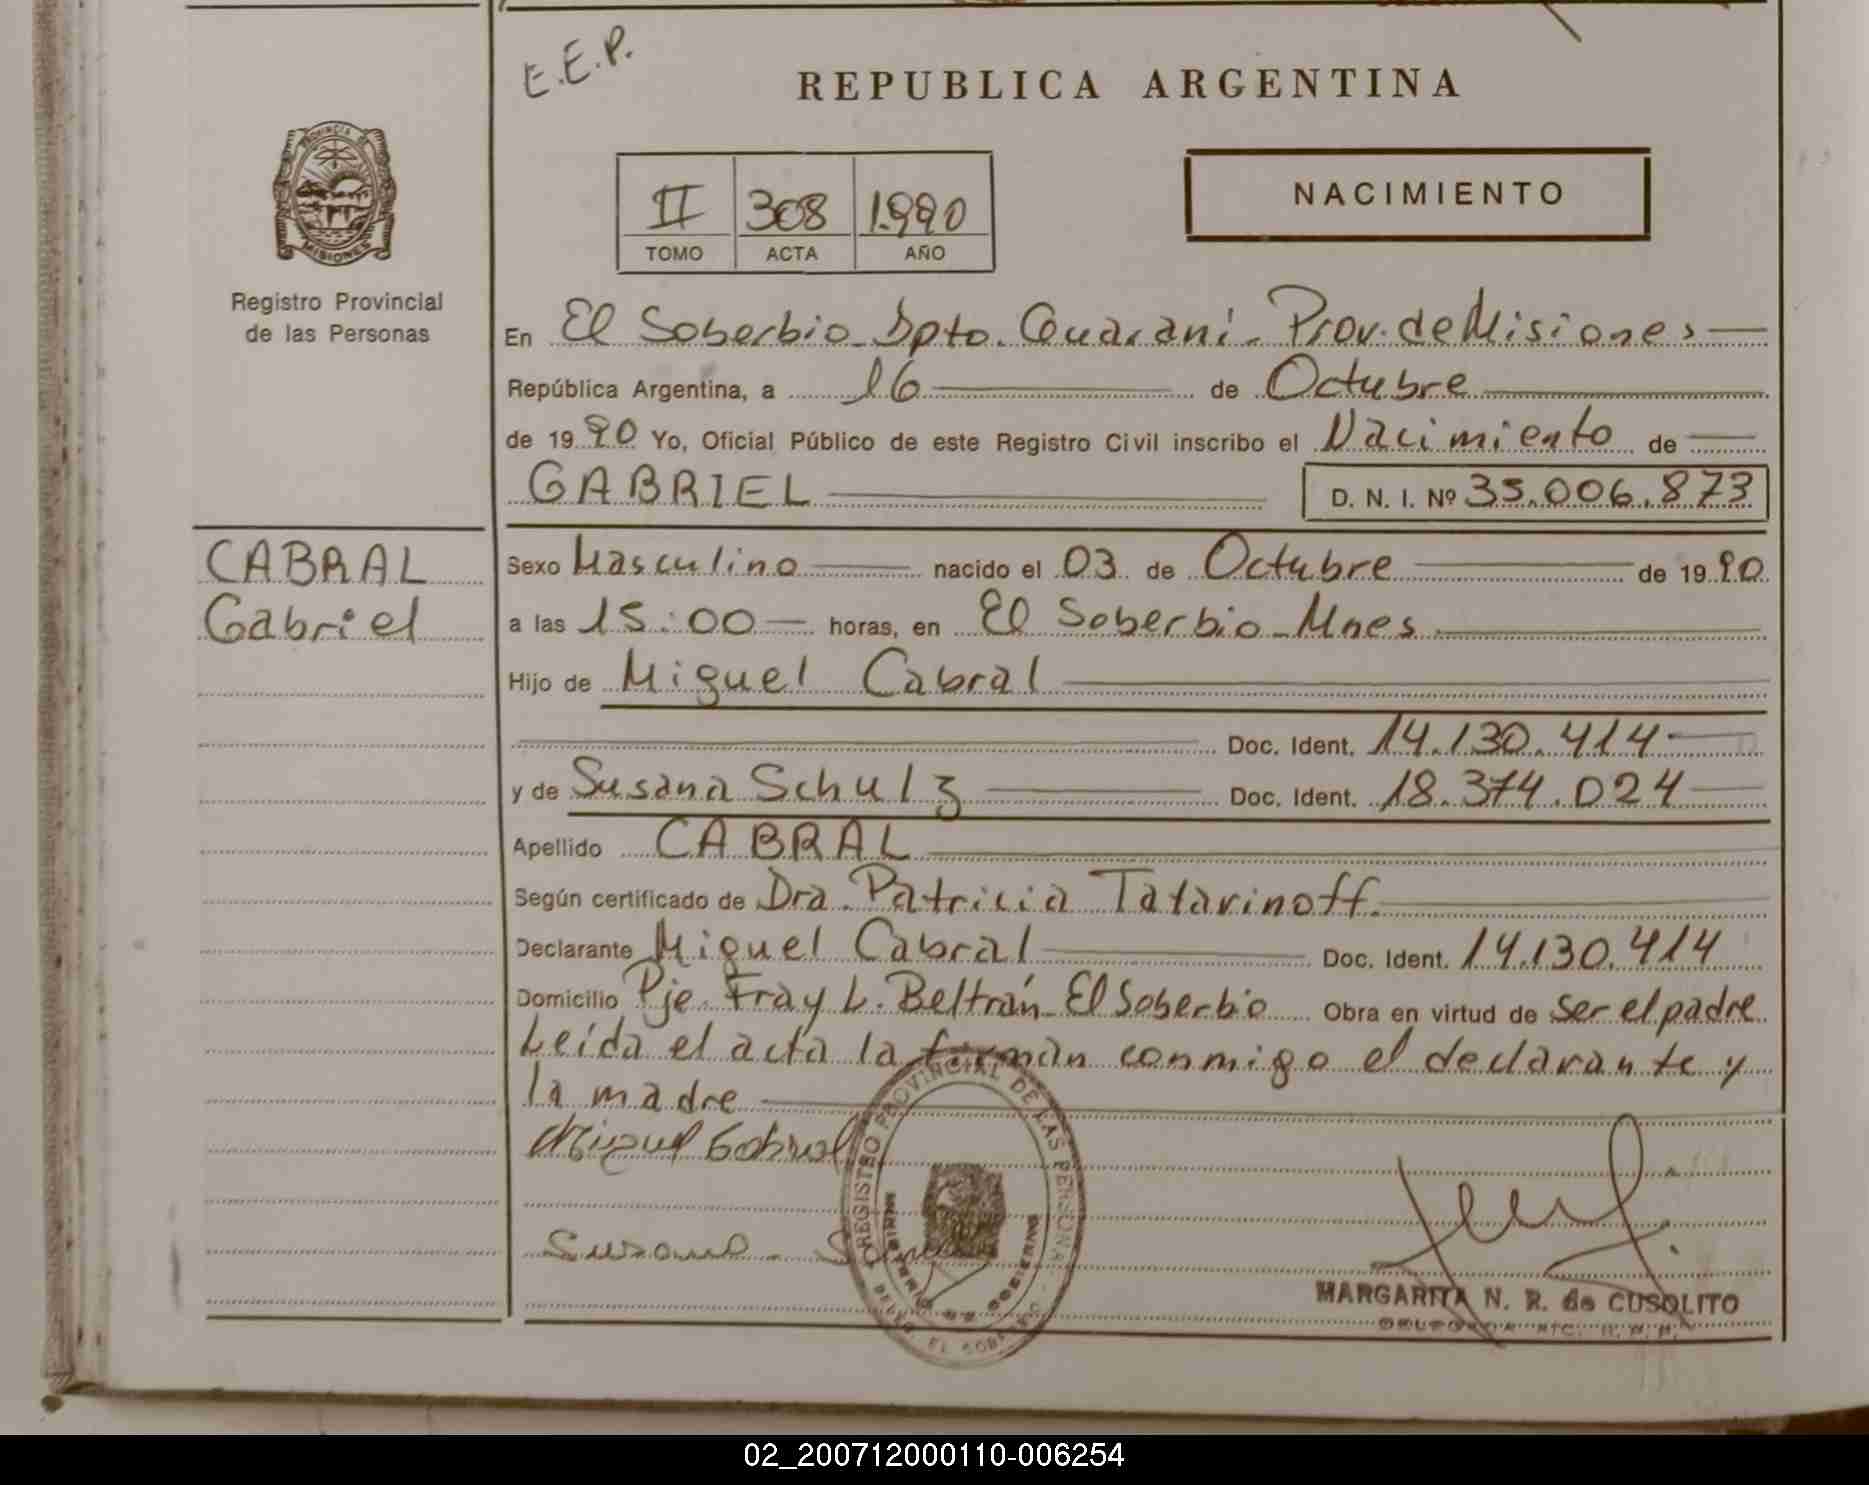 E.E.P.
REPUBLICA ARGENTINA
PROVINCIA DE
MISIONES
Registro Provincial
de las Personas
II 308 1.990
TOMO ACTA AÑO
NACIMIENTO
En El Soberbio Dpto. Guaraní - Prov. de Misiones
República Argentina, a 16 de Octubre
de 1990 Yo, Oficial Público de este Registro Civil inscribo el Nacimiento de
GABRIEL D. N. I. Nº 35.006.873
CABRAL
Gabriel
Sexo Masculino nacido el 03 de Octubre de 1990
a las 15:00 horas, en El Soberbio - Mnes
Hijo de Miguel Cabral
Doc. Ident. 14.130.414
y de Susana Schulz Doc. Ident. 18.374.024
Apellido CABRAL
Según certificado de Dra. Patricia Tatarinoff.
Declarante Miguel Cabral Doc. Ident. 14.130.414
Domicilio Pje. Fray L. Beltrán - El Soberbio Obra en virtud de ser el padre
Leída el acta la firman conmigo el declarante y
la madre
Miguel Cabral
Susana
REGISTRO PROVINCIAL DE LAS PERSONAS
MINISTERIO DE GOBIERNO
MARGARITA N. R. de CUSOLITO
02_200712000110-006254